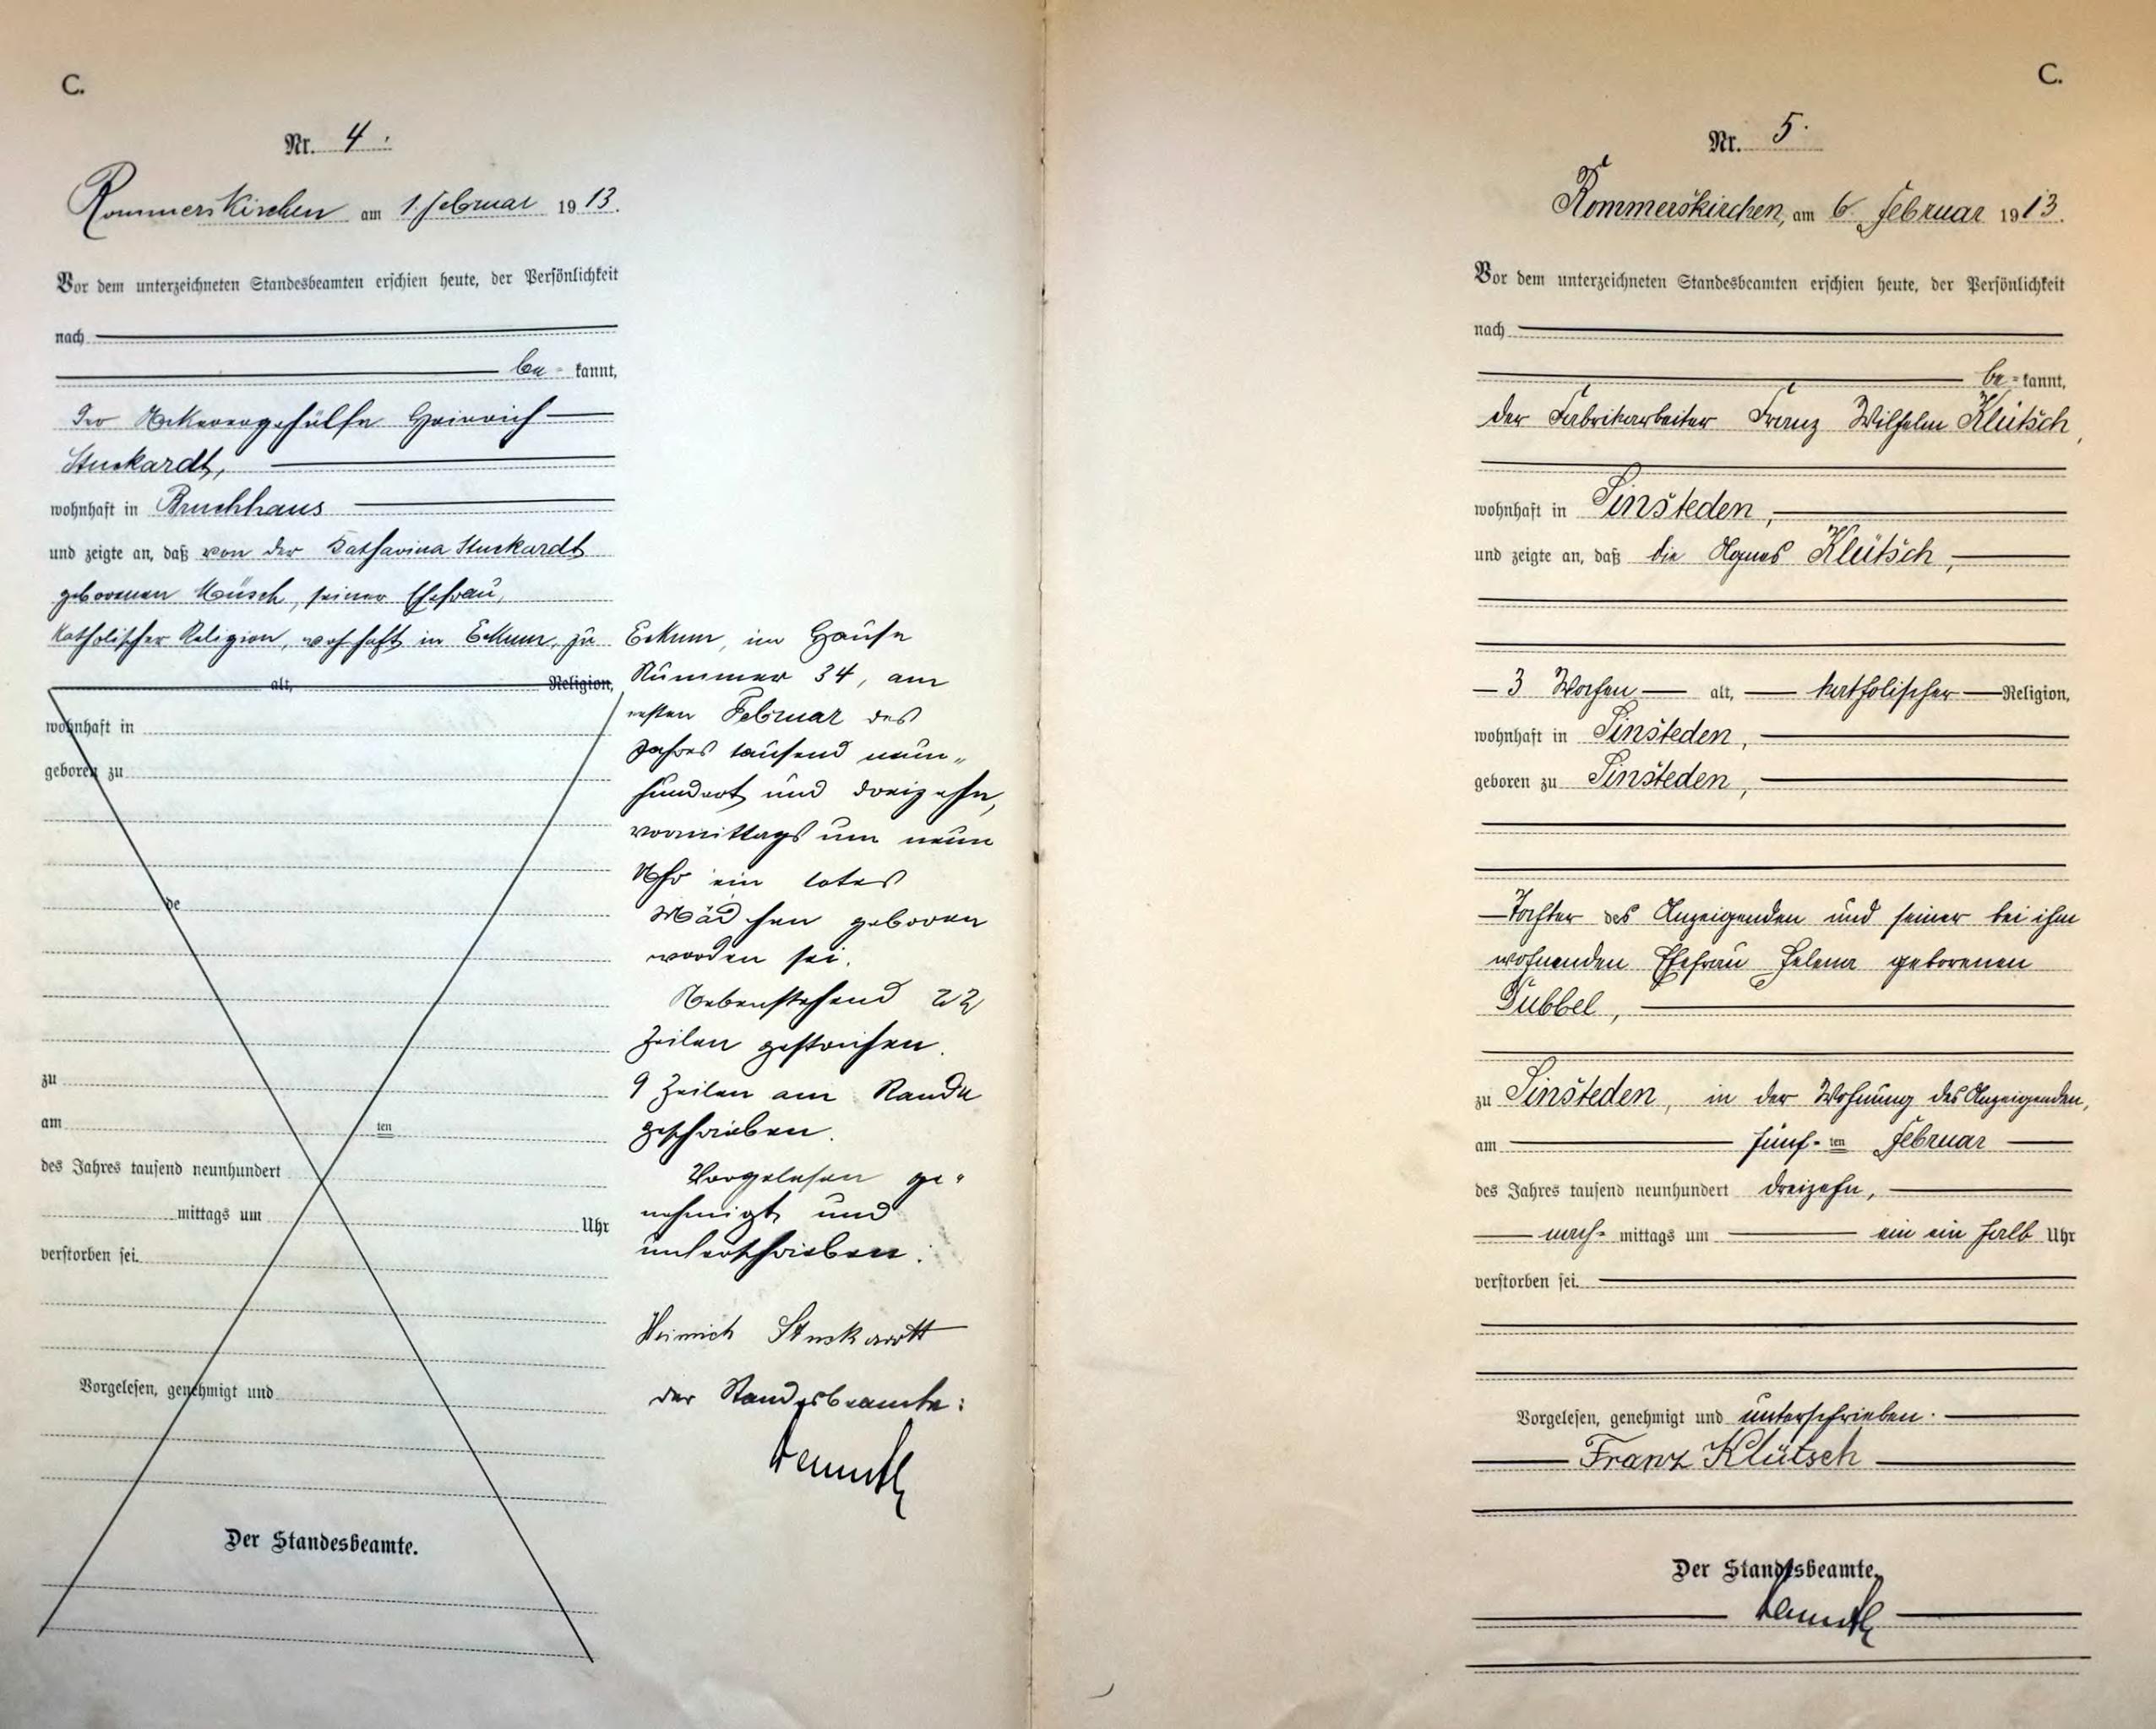 C.
Nr. 4.
Rommerskirchen am 1. Februar 1913.
Vor dem unterzeichneten Standesbeamten erschien heute, der Persönlichkeit
nach
be = kannt,
der Ackerergehülfe Heinrich
Stuckardt,
wohnhaft in Bruchhaus
und zeigte an, daß von der Katharina Stuckardt
geborenen Müsch, seiner Ehefrau,
katholischer Religion, wohnhaft in Eckum, zu
alt, Religion,
wohnhaft in
geboren zu
de
zu
am ten
des Jahres tausend neunhundert
mittags um Uhr
verstorben sei.
Vorgelesen, genehmigt und
Der Standesbeamte.
Eckum, im Hause
Nummer 34, am
ersten Februar des
Jahres tausend neun„
hundert und dreizehn,
vormittags um neun
Uhr ein totes
Mädchen geboren
worden sei.
Nebenstehend 22
Zeilen gestrichen.
9 Zeilen am Rande
geschrieben.
Vorgelesen ge„
nehmigt und
unterschrieben:
Heinrich
der Standesbeamte:
C.
Nr. 5.
Rommerskirchen, am 6. Februar 1913.
Vor dem unterzeichneten Standesbeamten erschien heute, der Persönlichkeit
nach
be = kannt,
der Fabrikarbeiter Franz Wilhelm Klütsch,
wohnhaft in Sinsteden,
und zeigte an, daß die Agnes Klütsch,
3 Wochen alt, katholischer Religion,
wohnhaft in Sinsteden,
geboren zu Sinsteden,
Tochter des Anzeigenden und seiner bei ihm
wohnenden Ehefrau Helena geborenen
Dubbel,
zu Sinsteden, in der Wohnung des Anzeigenden,
am fünf- ten Februar
des Jahres tausend neunhundert dreizehn,
nach= mittags um ein ein halb Uhr
verstorben sei.
Vorgelesen, genehmigt und unterschrieben.
Franz Klütsch
Der Standesbeamte.